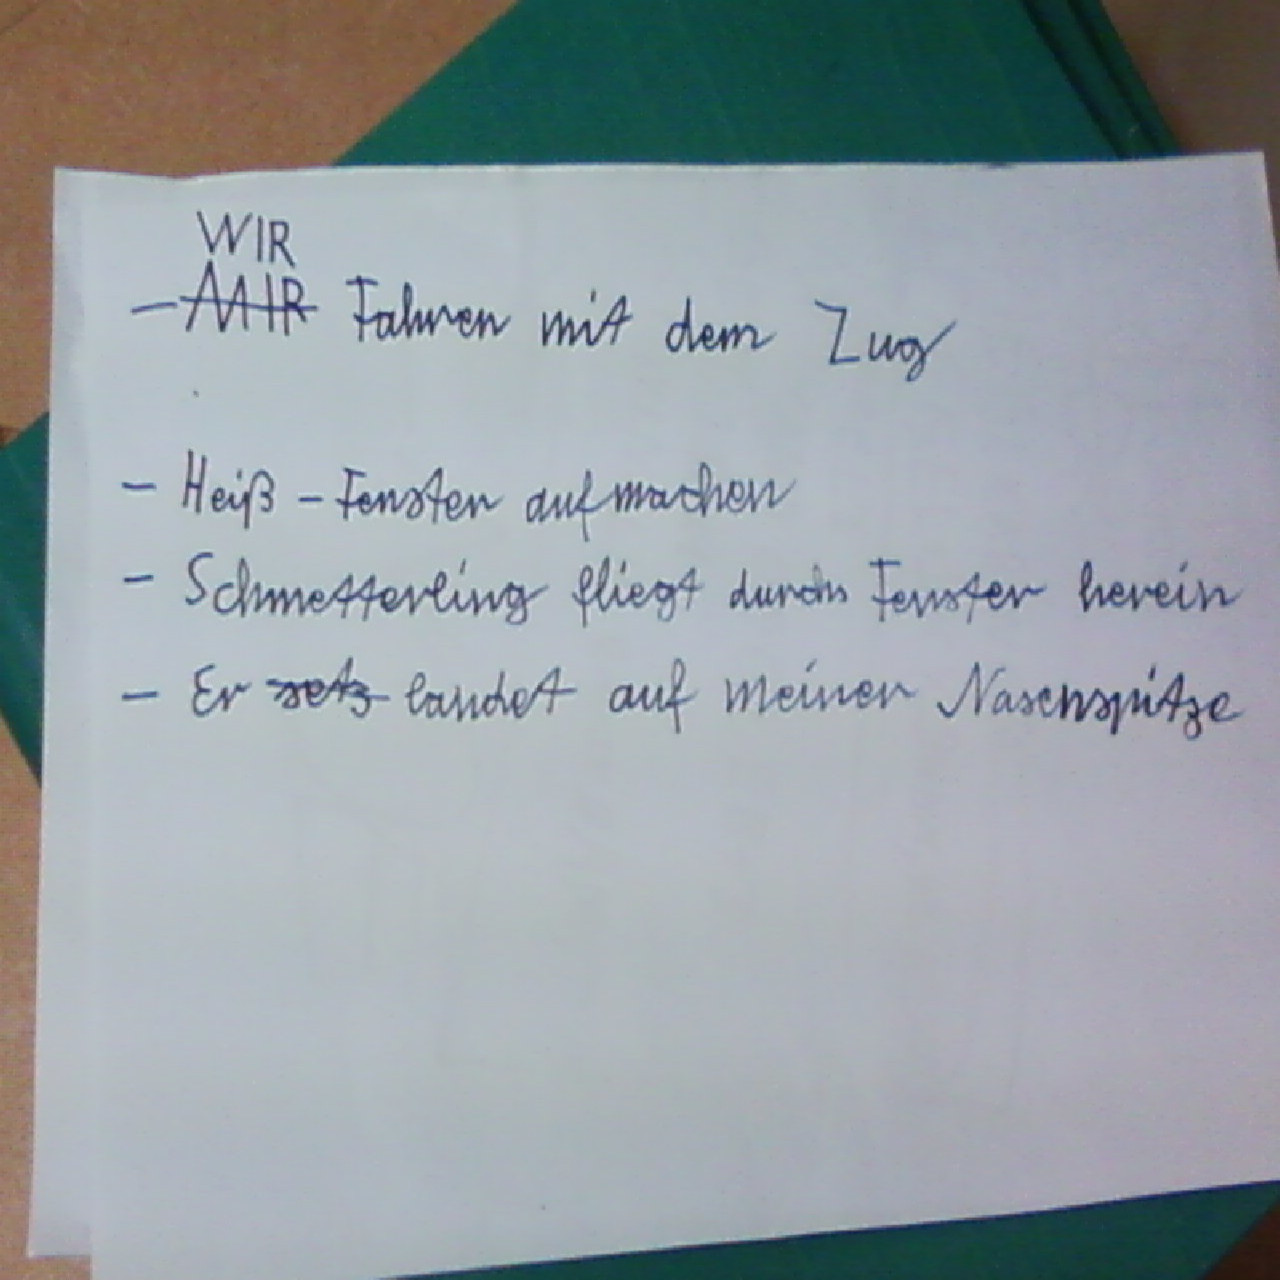 WIR
- MIR Fahren mit dem Zug
- Heiß - Fenster aufmachen
- Schmetterling fliegt durchs Fenster herein
- Er setz landet auf meiner Nasenspitze